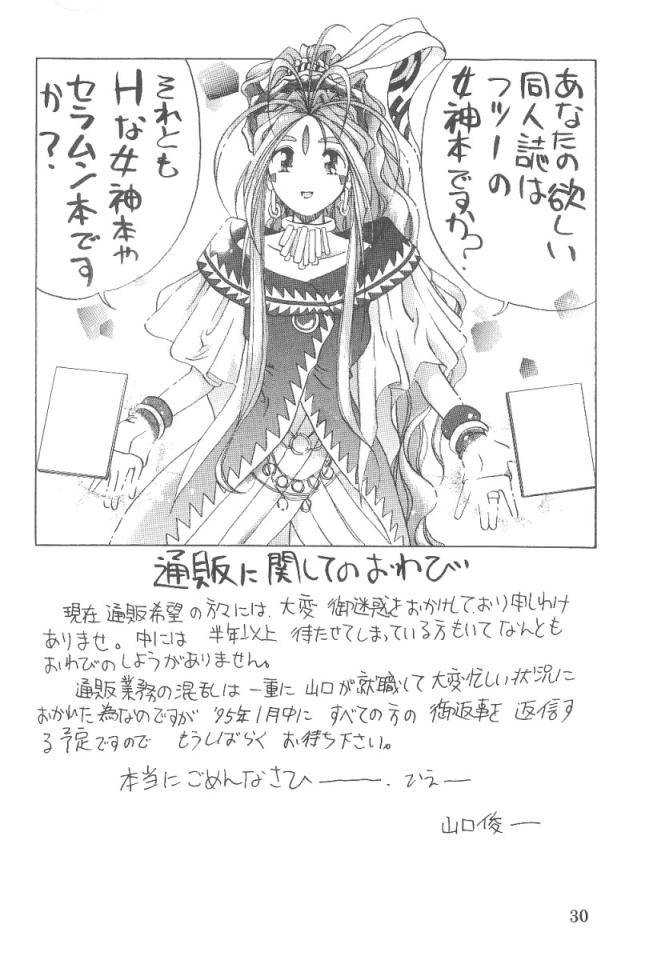 あなたの欲しい
同人誌は
フツーの
女神本ですか?
それとも
Hな女神本や
セラムン本です
か?
通販に関してのおわび
現在通販希望の方々には、大変御迷惑をおかけしており申しわけ
ありませ。中には半年以上待たせてしまっている方もいてなんとも
おわびのしようがありません。
通販業務の混乱は一重に山口が就職して大変忙しい状況に
おかれた為なのですが'95年1月中にすべての方の御返事を返信す
る予定ですのでもうしばらくお待ち下さい。
本当にごめんなさひ———.でえ—
山口俊一
30